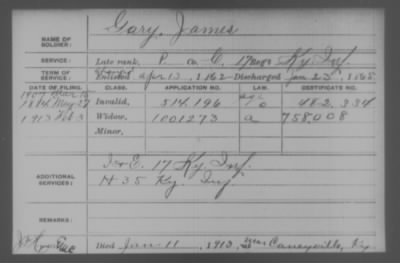 Gary, James
NAME OF SOLDIER:
SERVICE: Late rank, P. co. C, 17 Ky. Inf.
TERM OF SERVICE: Enlisted Apr 13, 1862 Discharged Jan 23, 1865
DATE OF FILING. CLASS. APPLICATION NO. LAW. CERTIFICATE NO.
1907
1884 May 27 Invalid, 514.196 482.334
1913 Feb 3 Widow, 1001273 a 758.008
Minor,
ADDITIONAL SERVICES:
I & E. 17 Ky. Inf.
H 35 Ky. Inf.
REMARKS:
Died Jan 11, 1913, near Caneyville, Ky.